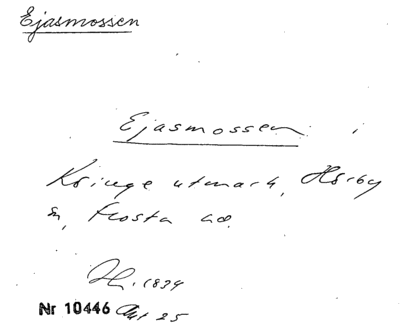 Ejasmossen
Ejasmossen i
Kringe utmark, Hörby
sn, Frosta hd.
1834
Nr 10446 Akt 25